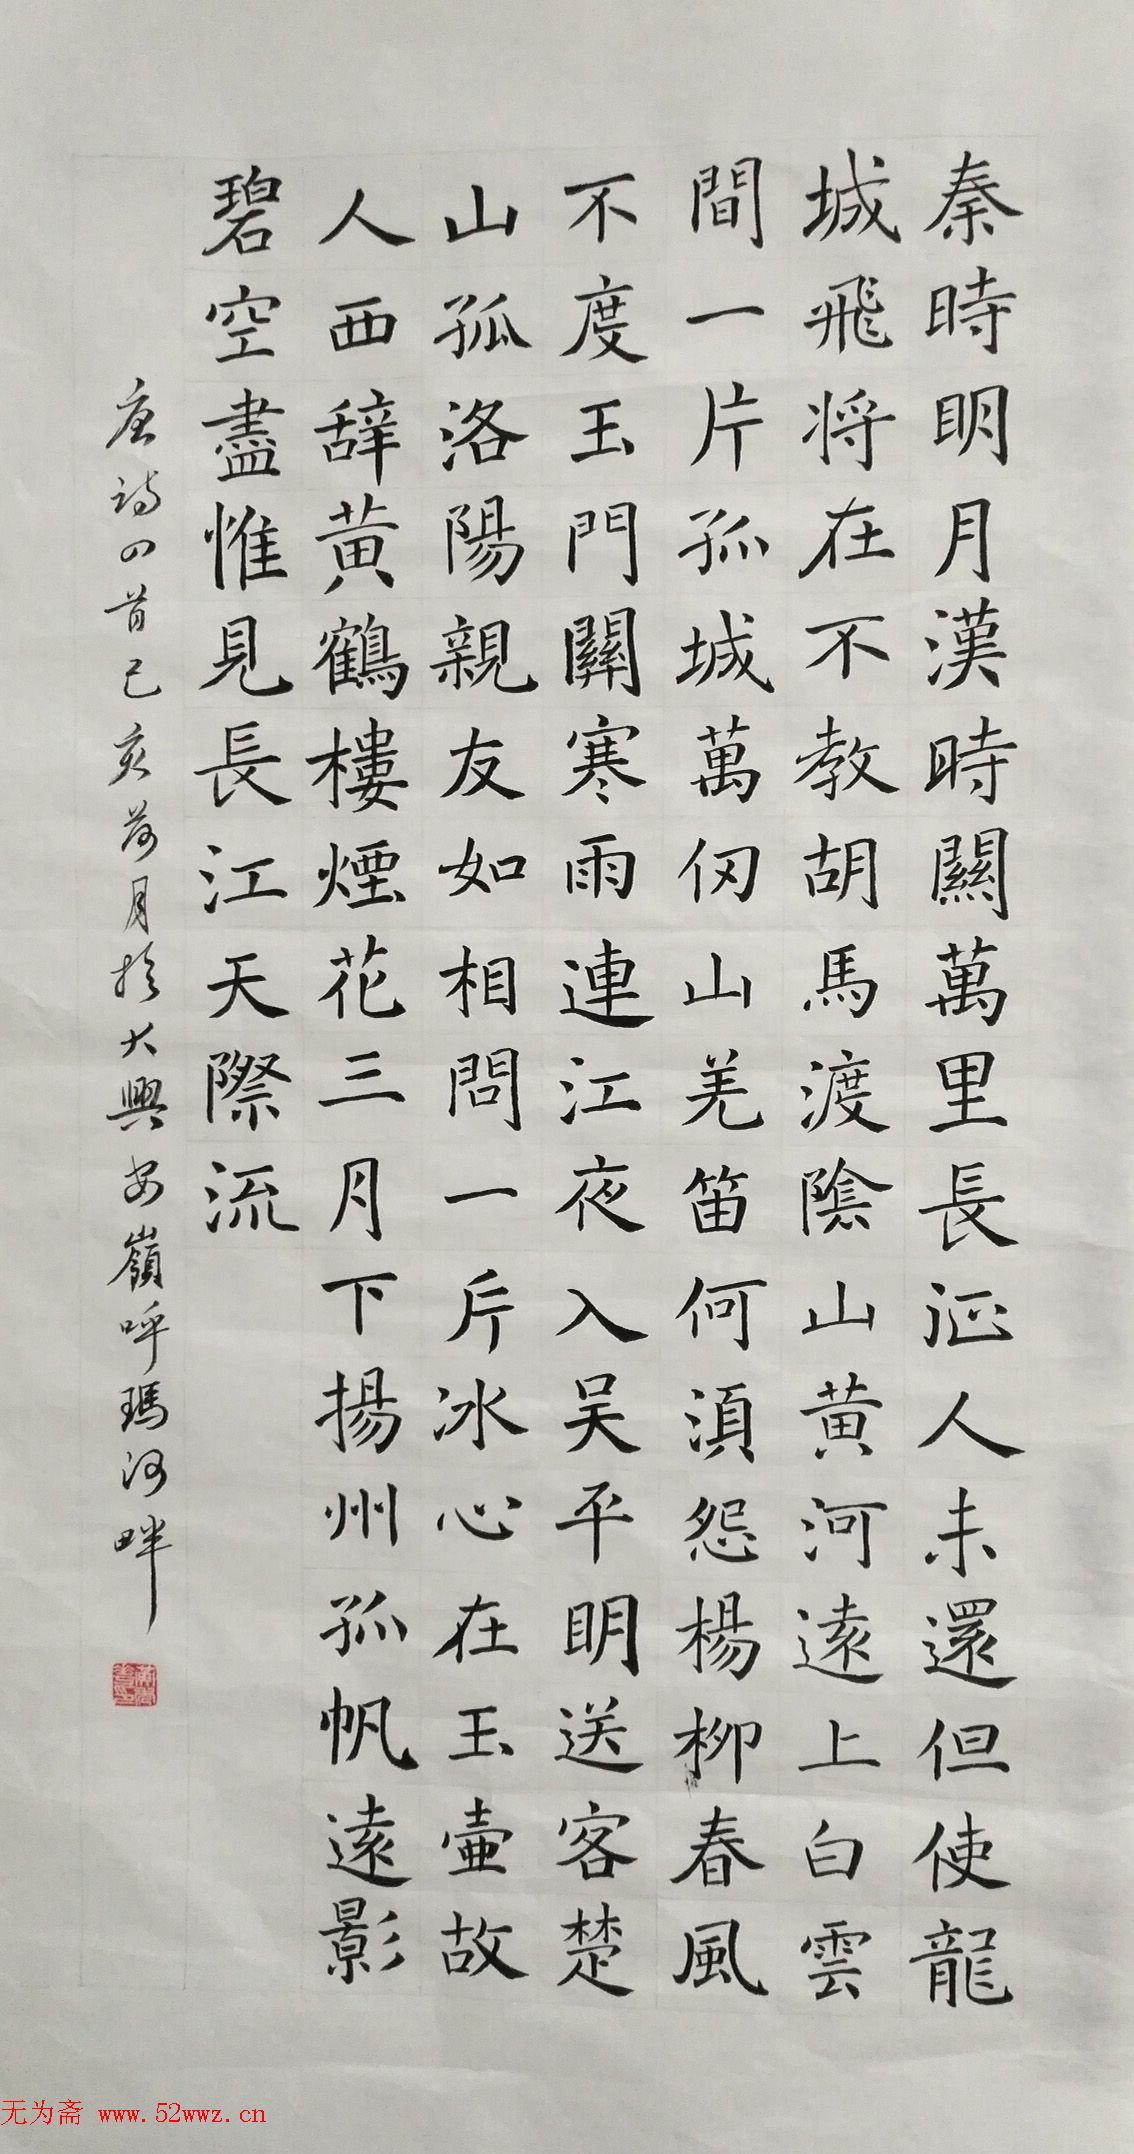 秦時明月漢時關萬里長征人未還但使龍
城飛将在不教胡馬渡陰山黄河遠上白雲
間一片孤城萬仞山羌笛何須怨楊柳春風
不度玉門關寒雨連江夜入吴平明送客楚
山孤洛陽親友如相問一片冰心在玉壺故
人西辞黄鶴樓煙花三月下揚州孤帆遠影
碧空盡惟見長江天際流
唐詩四首己亥荷月於大興安嶺呼瑪河畔
无为斋 www.52wwz.cn